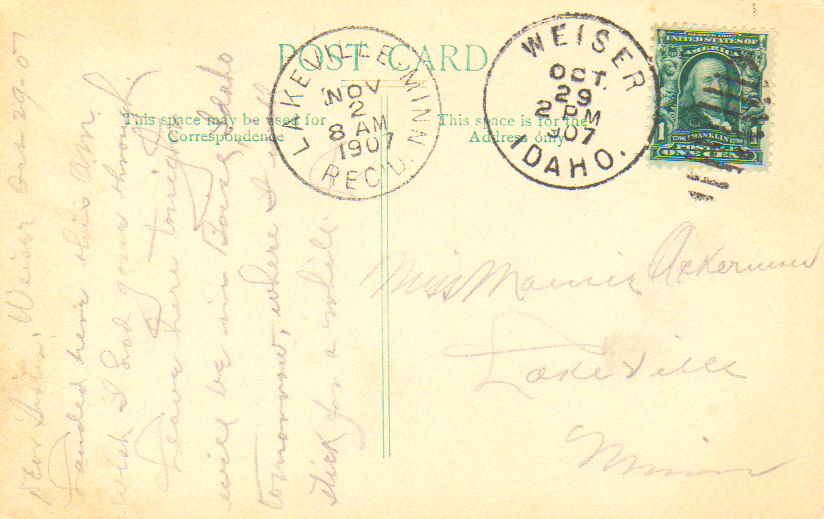 POST CARD
This space may be used for
Correspondence
This space is for the
Address only
LAKEVILLE MINN.
NOV
2
8 AM
1907
REC'D.
WEISER
OCT.
29
2 PM
907
IDAHO.
UNITED STATES OF
AMERICA
1
FRANKLIN
POSTAGE
ONE CENT
Weiser Oct 29-07
Dear Sister,
Landed here this am.
wish I had gone through
Leave here tonight
will be in Boise Idaho
tomorrow, where I will
stick for a while
Miss Mamie Ackerman
Lakeville
Minn